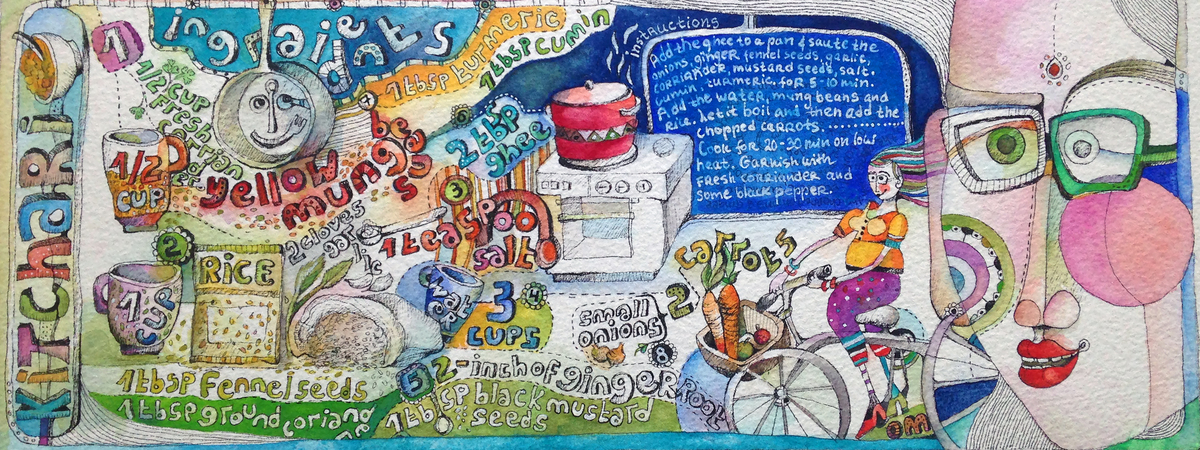 KitchaRi
1
ingredients
1/2 CUP
Fresh
1/2 CUP
yellow
mung
beans
1 tbsp turmeric
1 tbsp cumin
2 tbp
ghee
2
RICE
1 CUP
2 cloves
garlic
3
1 teaspoo
salt
water
3
CUPS
4
1 tbsp Fennel seeds
1 tbsp ground
5
2-inch of ginger Root
1 tbsp black mustard
seeds
small
onions
2
8
carrots
instructions
Add the ghee to a pan & saute the
onions, ginger fennel seeds, garlic,
coriander, mustard seeds, salt.
cumin, turmeric. for 5-10 min.
Add the water, mung beans and
Rice. Let it boil and then add the
chopped carrots..............
Cook for 20-30 min on low
heat. Garnish with
Fresh corriander and
some black pepper.